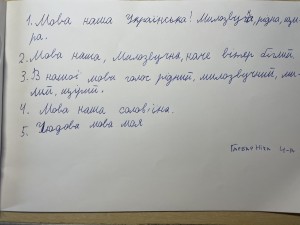 1. Мова наша Українська! Милозвучна, рідна, щи-
ра.
2. Мова наша, Милозвучна, наче вітер
3. В нашої мови голос рідний, милозвучний, ми-
лий, щирий.
4. Мова наша солов'їна.
5. Чудова мова моя